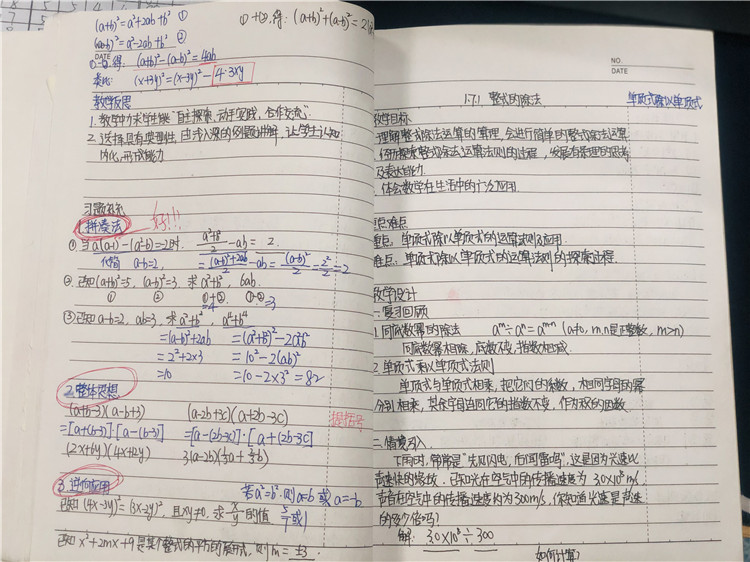 (a+b)²=a²+2ab+b² ①
(a-b)²=a²-2ab+b² ②
DATE
①-②得: (a+b)²-(a-b)²=4ab
类比: (x+3y)²=(x-3y)²-4·3xy
①+②,得: (a+b)²+(a-b)²=2(
教学反思
1. 教学中力求学生能“自主探索,动手实践,合作交流”.
2. 选择具有典型性,由浅入深的例题讲解,让学生认知
内化,形成能力
习题补充
1.拼凑法 好!!!
① 当a(a-1)-(a²-b)=2时. (a²+b²)/2-ab= 2.
化简 a-b=2, =((a-b)²+2ab)/2-ab=(a-b)²/2=2²/2=2
②.已知(a+b)²=5, (a-b)²=3. 求a²+b², 6ab.
① ② ①+② ①-②
=4 =3
③已知a-b=2, ab=3, 求a²+b², a⁴+b⁴
=(a-b)²+2ab =(a²+b²)²-2a²b²
=2²+2×3 =10²-2(ab)²
=10 =100-2×3²=82
2.整体思想
(a+b-3)(a-b+3) (a-2b+3c)(a+2b-3c) 提括号
=[a+(b-3)]·[a-(b-3)] =[a-(2b-3c)]·[a+(2b-3c)]
(2x+6y)(4x+12y) 3(a-2b)(
3.逆向应用 若a²=b²,则a=b 或 a=-b
已知(4x-3y)²=(3x-2y)², 且xy≠0, 求x/y的值 5/7或1
已知x²+2mx+9是某个整式的平方的展开式,则m= ±3 .
NO.
DATE
1.7.1 整式的除法 单项式除以单项式
教学目标
理解整式除法运算的算理,会进行简单的整式除法运算
经历探索整式除法运算法则的过程,发展有条理的思考
及表达能力.
体会数学在生活中的广泛应用.
重点难点
重点: 单项式除以单项式的运算法则及应用
难点: 单项式除以单项式的运算法则的探索过程.
教学设计
一.复习回顾
1.同底数幂的除法 aᵐ÷aⁿ=aᵐ⁻ⁿ (a≠0, m.n是正整数, m>n)
同底数幂相除,底数不变,指数相减.
2.单项式乘以单项式法则
单项式与单项式相乘,把它们的系数,相同字母的幂
分别相乘,其余字母连同它的指数不变,作为积的因数.
二.情境引入
下雨时,常常是“先见闪电,后闻雷鸣”,这是因为光速比
声速快的缘故.已知光在空气中的传播速度为 3.0×10⁸m/s,
声音在空气中的传播速度约为300m/s,你知道光速是声速
的多少倍吗?
解: 3.0×10⁸÷300
如何计算?